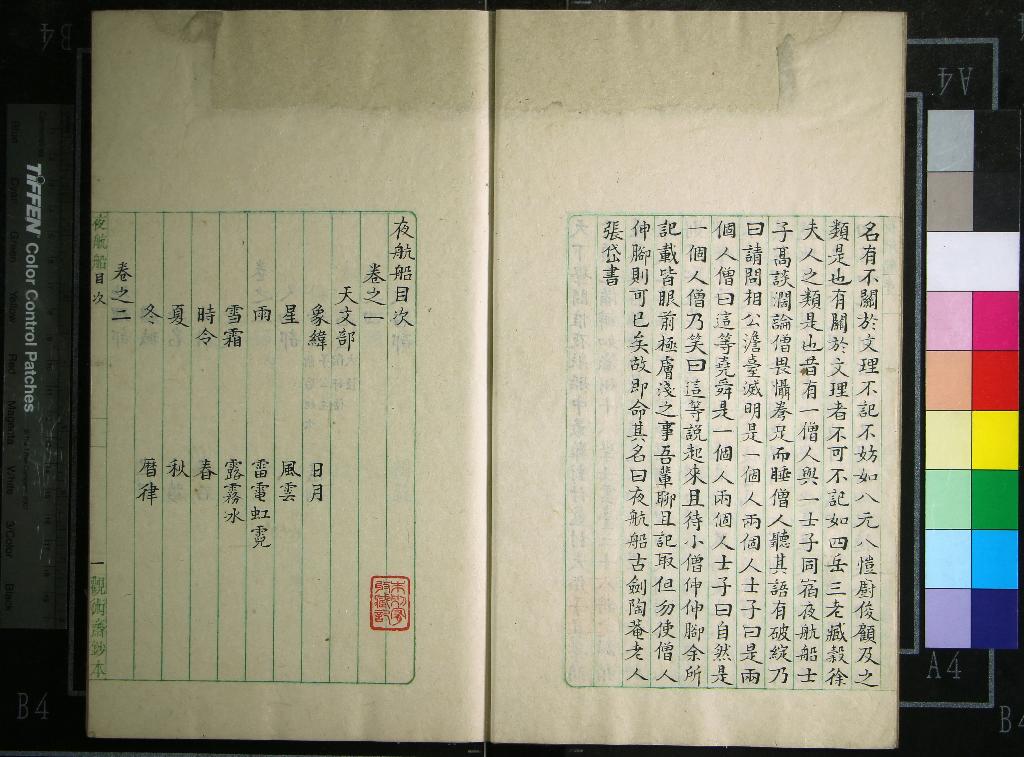 名有不關於文理不記不妨如八元八愷廚俊顧及之
類是也有關於文理者不可不記如四岳三老臧榖徐
夫人之類是也昔有一僧人與一士子同宿夜航船士
子高談濶論僧畏懾拳足而睡僧人聽其語有破綻乃
曰請問相公澹臺滅明是一個人兩個人士子曰是兩
個人僧曰這等堯舜是一個人兩個人士子曰自然是
一個人僧乃笑曰這等說起來且待小僧伸伸腳余所
記載皆眼前極膚淺之事吾輩聊且記取但勿使僧人
伸腳則可已矣故即命其名曰夜航船古劍陶菴老人
張岱書
夜航船目次
卷之一
天文部
象緯 日月
星 風雲
雨 雷電虹霓
雪霜 露霧冰
時令 春
夏 秋
冬 曆律
卷之二
夜航船目次 一 觀術齋鈔本
TIFFEN Color Control Patches
Blue Cyan Green Yellow Red Magenta White 3/Color Black
B4
A4
A4
B4
B4